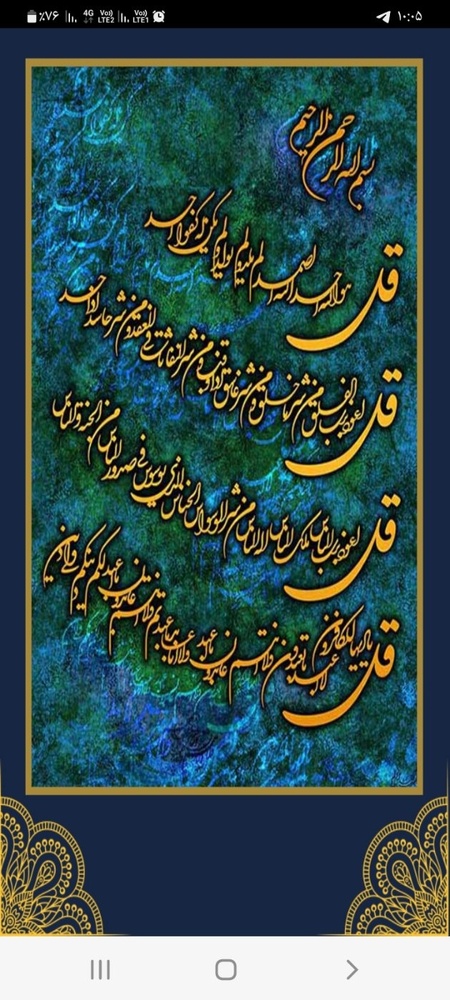 ٪۷۶ 4G Vo)) LTE2 Vo)) LTE1 ۱۰:۰۵
بسم الله الرحمن الرحیم
قل هو الله احد الله الصمد لم یلد و لم یولد و لم یکن له کفوا احد
قل اعوذ برب الفلق من شر ما خلق و من شر غاسق اذا وقب و من شر النفاثات فی العقد و من شر حاسد اذا حسد
قل اعوذ برب الناس ملک الناس اله الناس من شر الوسواس الخناس الذی یوسوس فی صدور الناس من الجنة و الناس
قل یا ایها الکافرون لا اعبد ما تعبدون و لا انتم عابدون ما اعبد و لا انا عابد ما عبدتم و لا انتم عابدون ما اعبد لکم دینکم ولی دین